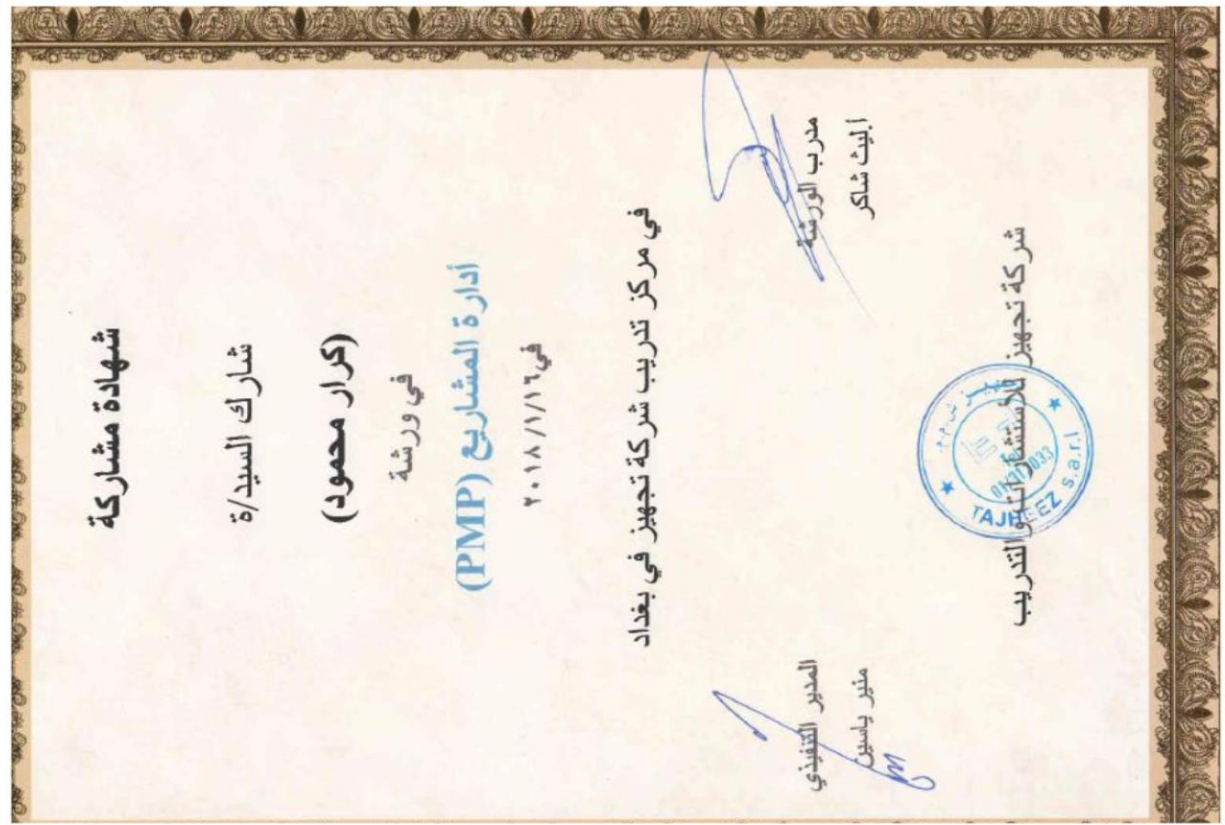 شهادة مشاركة
شارك السيد/ة
(كرار محمود)
في ورشة
أدارة المشاريع (PMP)
في ٢٠١٨/١/١٦
في مركز تدريب شركة تجهيز في بغداد
مدرب الورشة
أ.ليث شاكر
المدير التنفيذي
منير ياسين
شركة تجهيز للأستشارات والتدريب
TAJHEEZ s.a.r.l